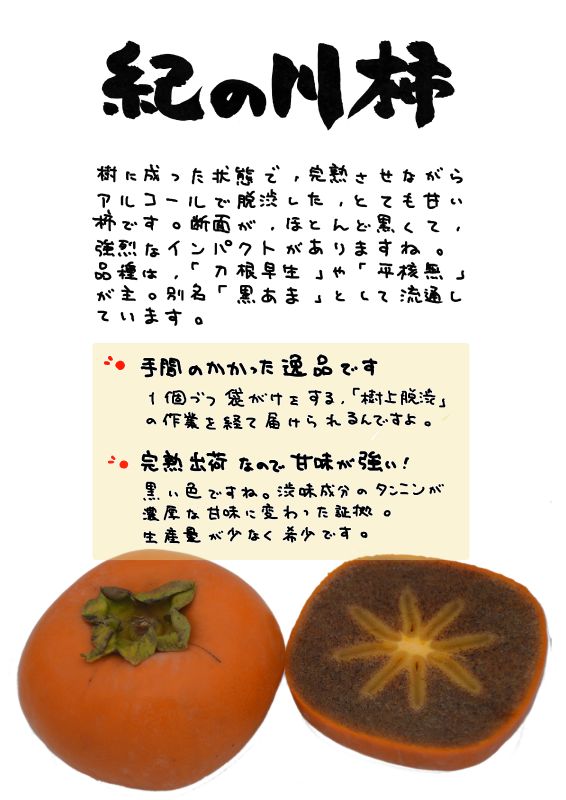 紀の川柿
樹に成った状態で,完熟させながら
アルコールで脱渋した,とても甘い
柿です。断面が,ほとんど黒くて,
強烈なインパクトがありますね。
品種は,「刀根早生」や「平核無」
が主。別名「黒あま」として流通し
ています。
手間のかかった逸品です
1個づつ袋がけをする,「樹上脱渋」
の作業を経て届けられるんですよ。
完熟出荷なので甘味が強い!
黒い色ですね。渋味成分のタンニンが
濃厚な甘味に変わった証拠。
生産量が少なく希少です。